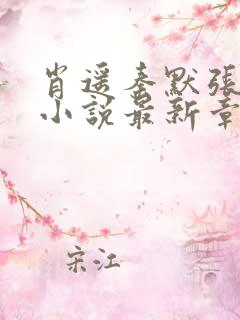 肖遥秦默張
小說最新章
宋江